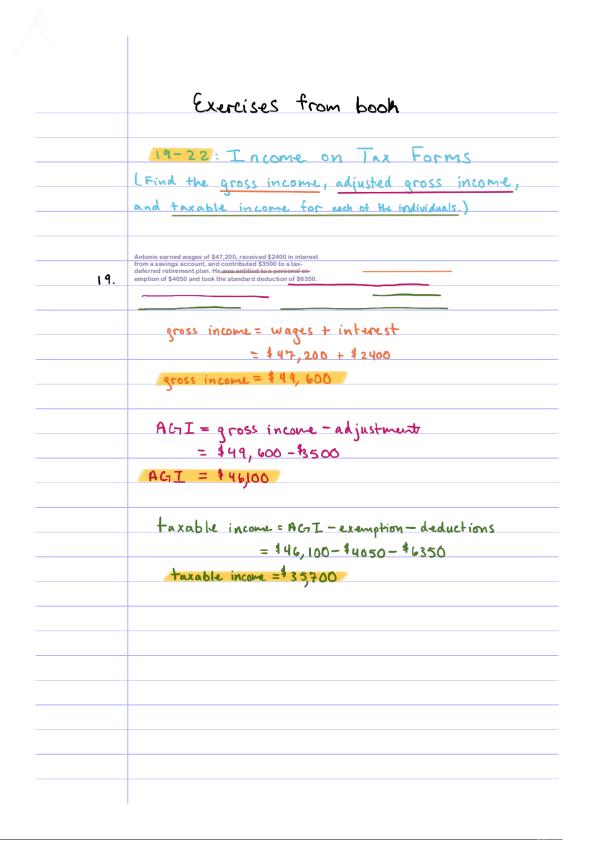 Exercises from book
19-22: Income on Tax Forms
(Find the gross income, adjusted gross income,
and taxable income for each of the individuals.)
Antonio earned wages of $47,200, received $2400 in interest
from a savings account, and contributed $3500 to a tax-
deferred retirement plan. He was entitled to a personal ex-
emption of $4050 and took the standard deduction of $6350.
19.
gross income = wages + interest
= $47,200 + $2400
gross income = $49,600
AGI = gross income - adjustment
= $49,600 - $3500
AGI = $46,100
taxable income = AGI - exemption - deductions
= $46,100 - $4050 - $6350
taxable income = $35,700